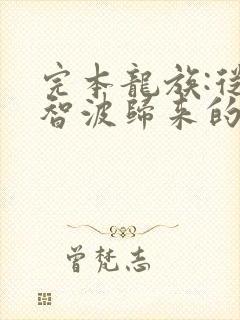 完本龍族:從
智波歸來的
曾梵志